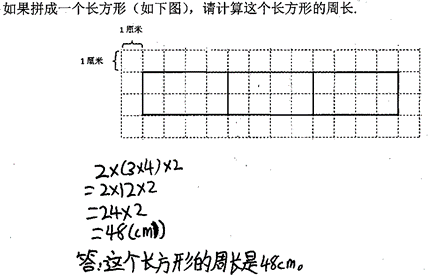 如果拼成一个长方形（如下图），请计算这个长方形的周长.
1厘米
1厘米
2×(3×4)×2
=2×12×2
=24×2
=48(cm)
答:这个长方形的周长是48cm。